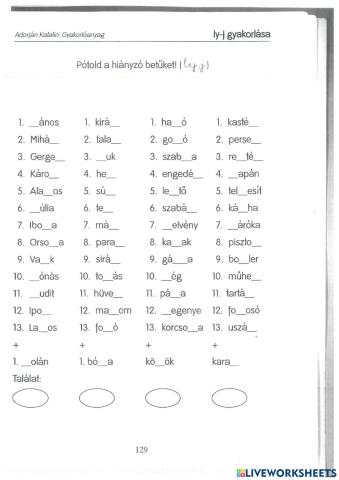 Adorján Katalin: Gyakorlóanyag ly-j gyakorlása
Pótold a hiányzó betűket! ( ly, j )
1. __ános 1. kirá__ 1. ha__ó 1. kasté__
2. Mihá__ 2. tala__ 2. go__ó 2. perse__
3. Gerge__ 3. __uk 3. szab__a 3. re__té__
4. Káro__ 4. he__ 4. engedé__ 4. __apán
5. Ala__os 5. sú__ 5. le__tő 5. tel__esít
6. __úlia 6. te__ 6. szabá__ 6. ká__ha
7. Ibo__a 7. má__ 7. __elvény 7. __áróka
8. Orso__a 8. para__ 8. ka__ak 8. piszto__
9. Va__k 9. sirá__ 9. gá__a 9. bo__ler
10. __ónás 10. to__ás 10. __ég 10. műhe__
11. __udit 11. hüve__ 11. pá__a 11. tartá__
12. Ipo__ 12. ma__om 12. __egenye 12. fo__osó
13. La__os 13. fo__ó 13. korcso__a 13. uszá__
+ + + +
1. __olán 1. bó__a kö__ök kara__
Találat:
129
LIVEWORKSHEETS